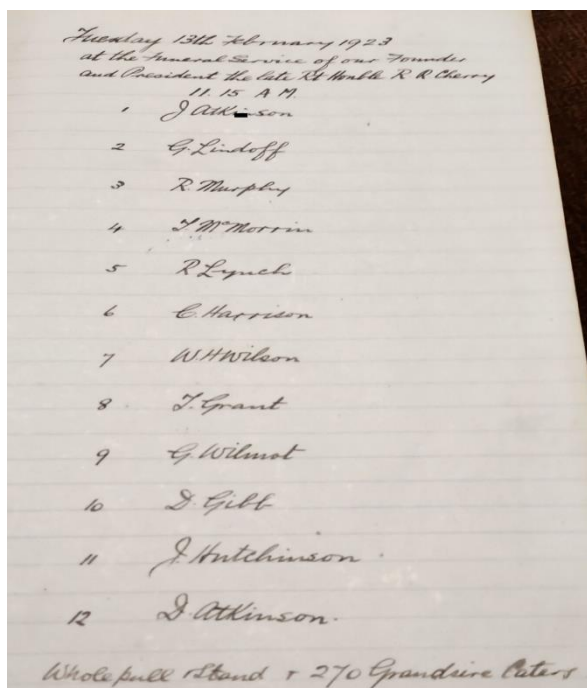 Tuesday 13th February 1923
at the Funeral Service of our Founder
and President the late Rt Honble R R Cherry
11.15 A M.
1 J Atkinson
2 G. Lindoff
3 R. Murphy
4 J. McMorrin
5 R Lynch
6 C. Harrison
7 W. H Wilson
8 J. Grant
9 G. Wilmot
10 D. Gibb
11 J. Hutchinson.
12 D. Atkinson.
Whole pull & Stand & 270 Grandsire Caters